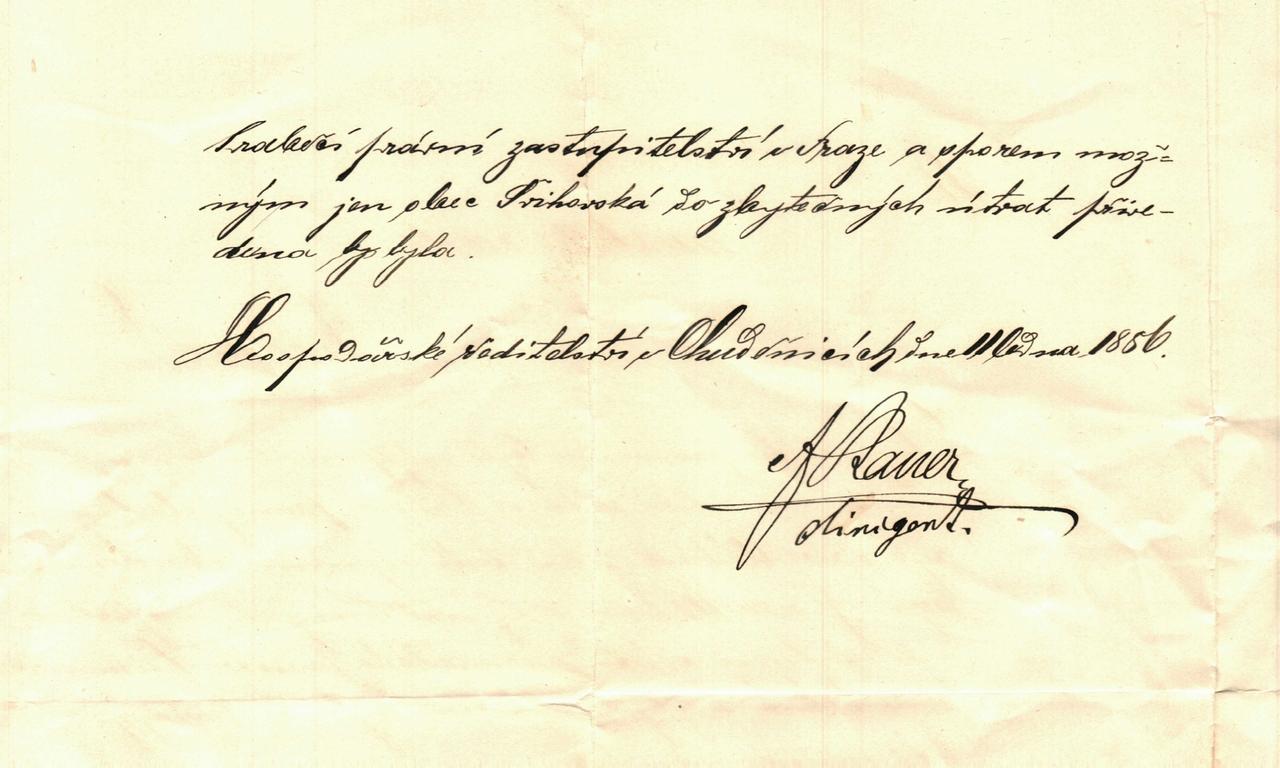 hraběcí právní zastupitelství v Praze a sporem mož=
ným jen obec Srihovská do zbytečných útrat přive-
dena by byla.
Hospodářské ředitelství v Chuděnicích dne 11 ledna 1886.
A Rauer
dirigent.